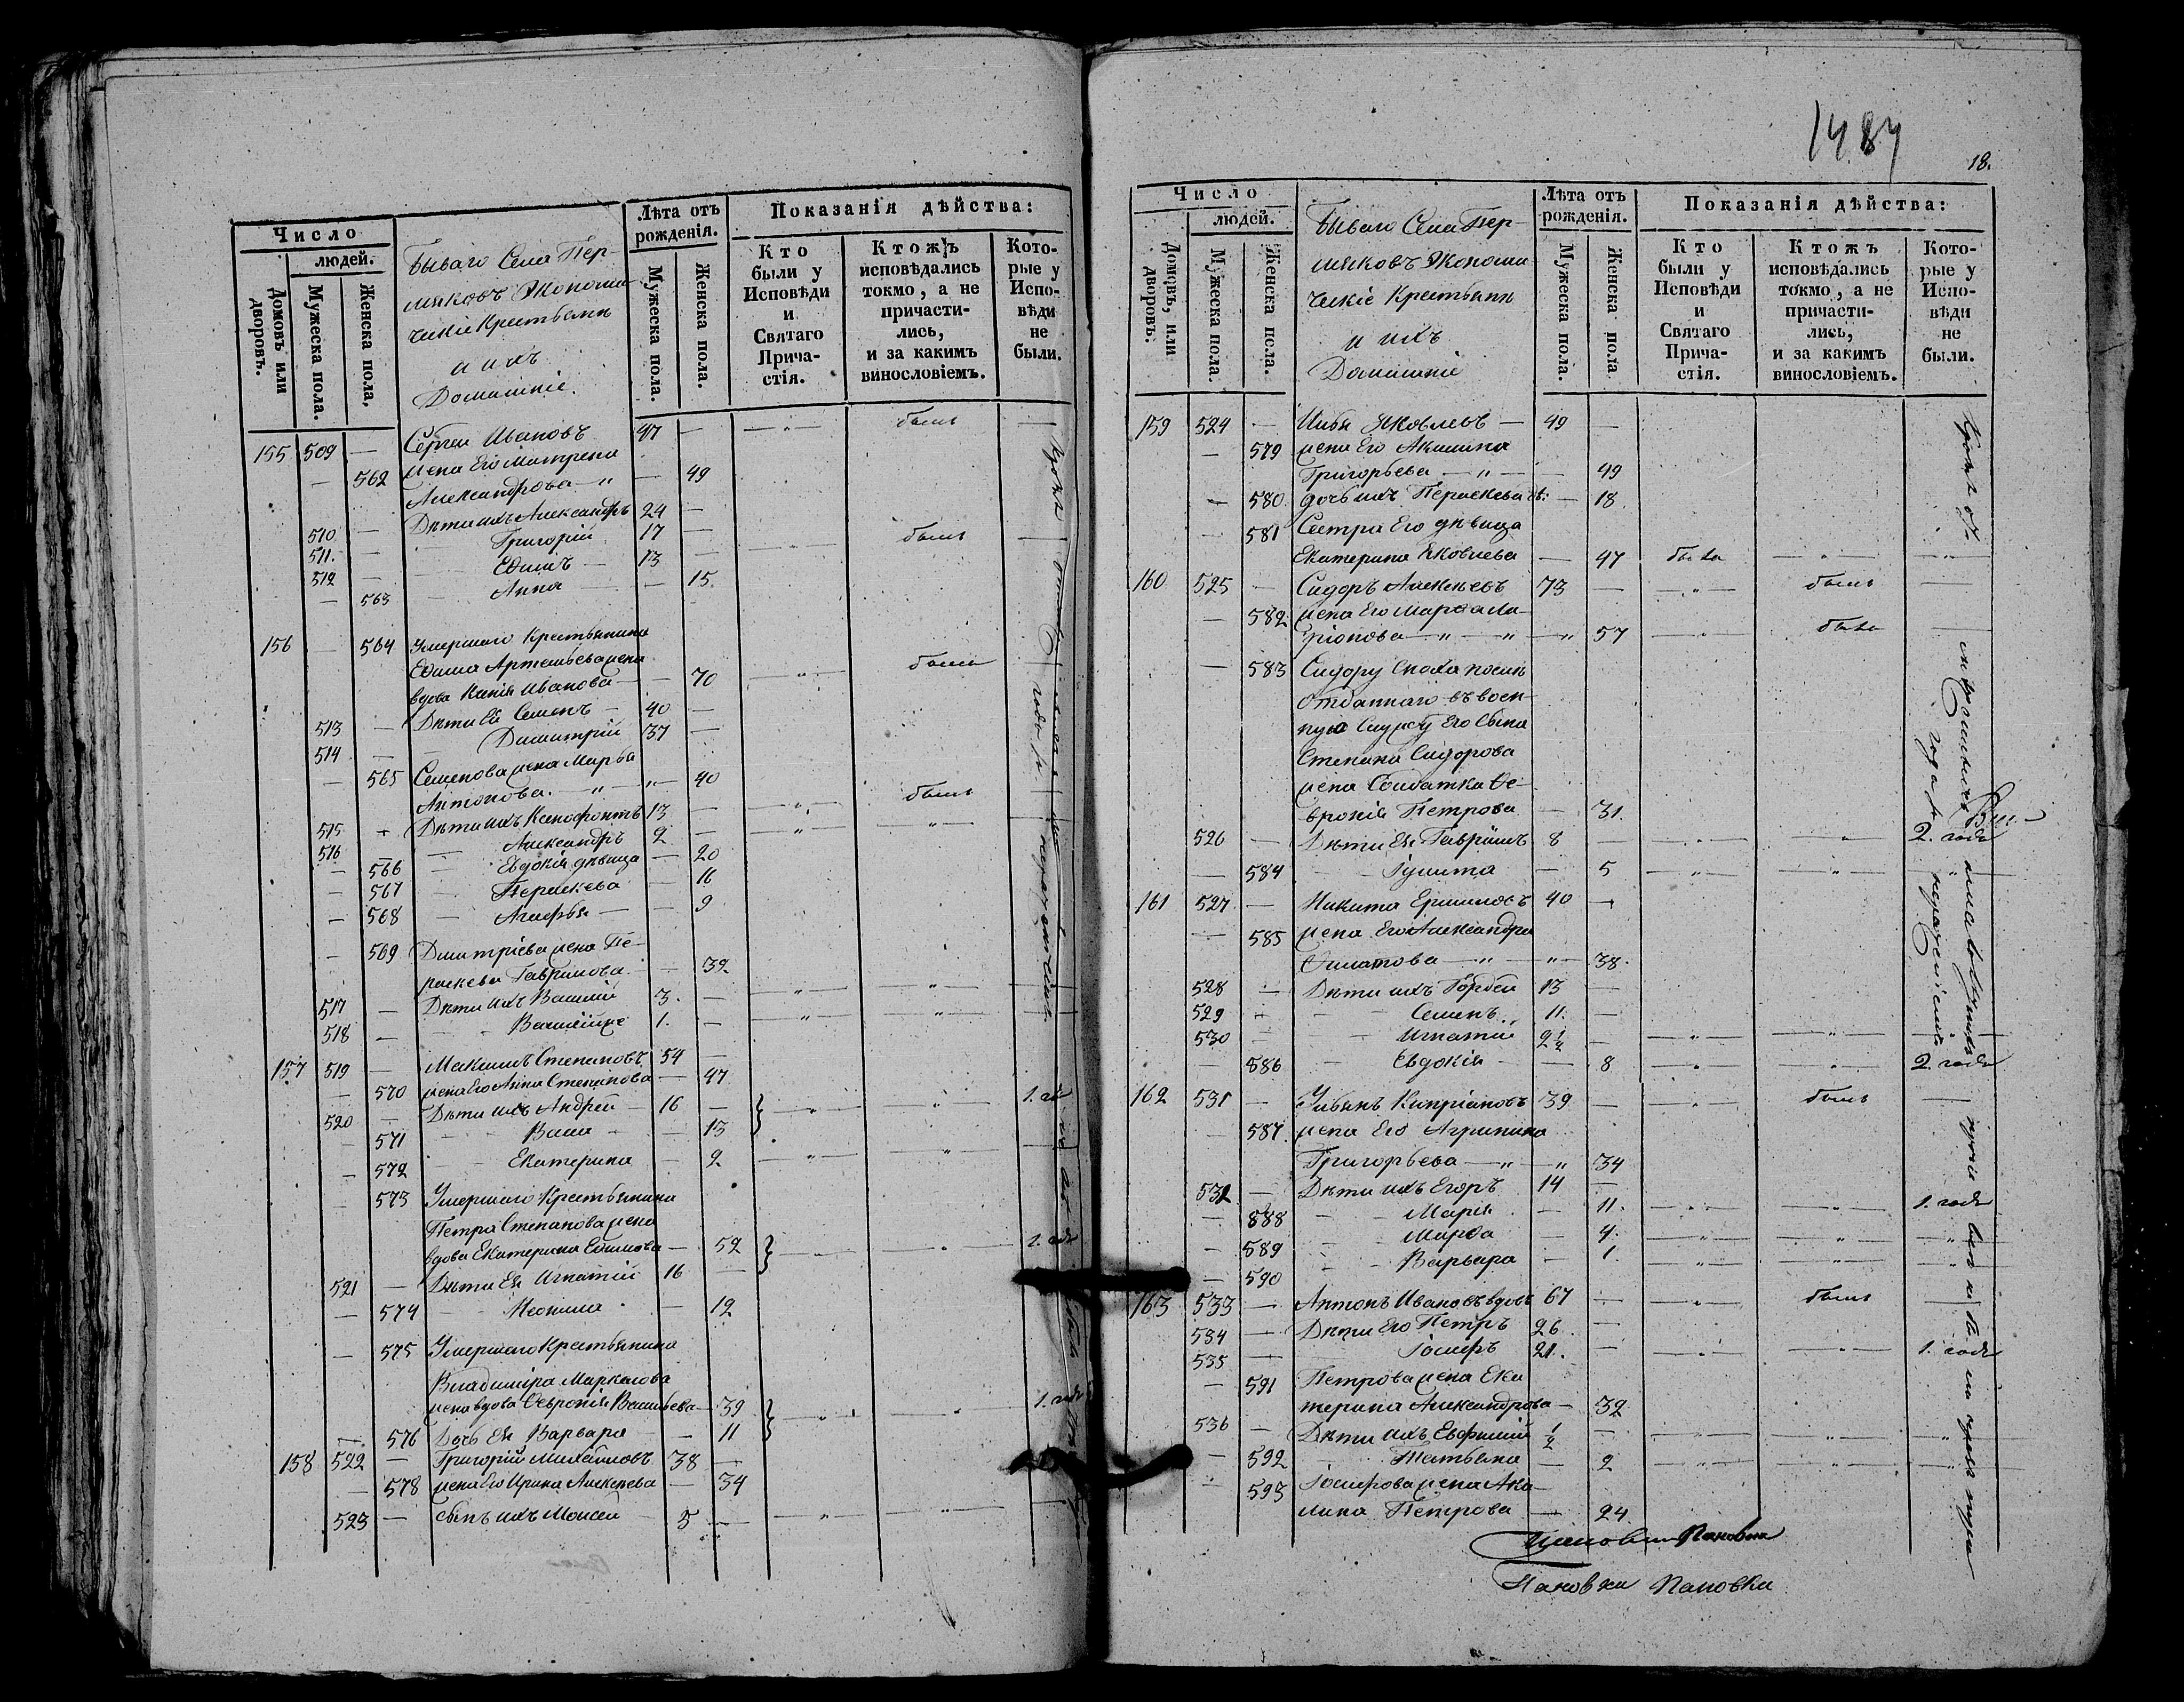 Число
людей.
Домовъ или дворовъ.
Мужеска пола.
Женска пола,
Бываго Села Пер-
мяковъ Экономи
ческіе Крестьянѣ
и ихъ
Домашніе.
Лѣта отъ рожденія.
Мужеска пола.
Женска пола.
Показанія дѣйства:
Кто были у Исповѣди и Святаго Прича-стія.
Ктожъ исповѣдались токмо, а не причасти-лись, и за какимъ винословіемъ.
Кото-рые у Испо-вѣди не были.
155 509 — Сергей Ивановъ 47 — — „ — былъ —
— 562 жена Его Матрена
Александрова — „ — 49
510 — Дѣти ихъ Александръ 24 —
511. — Григорій 17 — былъ —
512 — Ефимъ — 13 —
— 563 Анна — 15.
156 — 564 Умершаго Крестьянина
Ефима Артемьева жена
вдова Ксенія Иванова — — 70 — „ — была —
513 — Дѣти Ея Семенъ — 40 —
514 — Димитрій 37 —
— 565 Семенова жена Марфа
Антонова. — „ — „ — 40
515 — Дѣти ихъ Ксенофонтъ 13 — — „ — былъ
516 — Александръ 2 — — „ — „ —
— 566 — Евдокія дѣвица — 20
— 567 — Пераскева — 16
— 568 — Агафья — — 9
— 569 Дмитріева жена Пе-
раскева Гаврилова — 32
517 — Дѣти ихъ Василій 3. — — „ — — „ — —
518 — Василій же 1. — — „ — — „ — —
157 519 — Максимъ Степановъ 54 —
— 570 жена Его Анна Степанова — 47
520 — Дѣти ихъ Андрей — 16 — — „ — — „ — 1. годъ
— 571 — Васса — — 13
— 572 — Екатерина — 2 — „ — — „ — —
— 573 Умершаго Крестьянина
Петра Степанова жена
вдова Екатерина Ефимова — 52 — „ — „ 1. годъ
521 — Дѣти Ея Игнатій 16 —
— 574 — Неонила — 12
— 575 Умершаго Крестьянина
Владиміра Маркелова
жена вдова Февронія Васильева — 39 — „ — „ 1. годъ
— 576 Дочь Ея Варвара — — 11
158 522 — Григорій Михайловъ 38 —
— 578 жена Его Ирина Алексѣева — 34
523 — сынъ ихъ Моисей 5 — — „ — — „ — —
1487
18.
Число
людей.
Домовъ, или дворовъ.
Мужеска пола.
Женска пола.
Бываго Села Пер-
мяковъ Экономи
ческіе Крестьянѣ
и ихъ
Домашніе
Лѣта отъ рожденія.
Мужеска пола.
Женска пола
Показанія дѣйства:
Кто были у Исповѣди и Святаго Прича-стія.
Ктожъ исповѣдались токмо, а не причасти-лись, и за какимъ винословіемъ.
Кото-рые у Испо-вѣди не были.
159 524 — Илья Яковлевъ — 49 —
— 579 жена Его Акилина
Григорьева — „ — — 49
— 580 дочь ихъ Пераскева — 18
— 581 Сестра Его дѣвица
Екатерина Яковлева — 47 была — „ — „
160 525 — Сидоръ Алексѣевъ 73 — — „ — былъ —
— 582 жена Его Марфа Ла-
ріонова — „ — „ — „ 57 — „ — была —
— 583 Сидору сноха послѣ
отданнаго въ воен-
ную службу Его Сына
Степана Сидорова
жена Солдатка Фе-
вронія Петрова — 31.
526 — Дѣти Ея Гаврiилъ 8 — — — „ 2. года
— 584 — Іулита — 5 — „ — — „ — „
161 527 — Никита Ермиловъ 40 —
— 585 жена Его Александра
— „ — „ — 38.
528 — Дѣти ихъ Гордей 13 —
529 — Семенъ 11. —
530 — Игнатій 2½ — — „ — — „ — —
— 586 — Евдокія — — 8 — „ — — „ — 2. года
162 531 — Ульянъ Кипріановъ 39 — — „ — былъ —
— 587 жена Его Агрипина
Григорьева — „ — „ 34
532 — Дѣти ихъ Егоръ 14 —
— 588 — Марія — 11. — „ — — „ — 1. годъ
— 589 — Марфа — 4. — „ — — „ — „
— 590 — Варвара — 1. — „ — — „ — „
163 533 — Антонъ Ивановъ вдовъ 67 — — „ — былъ —
534 — Дѣти Его Петръ 26 —
535 — Іосифъ 21. — — „ — — „ — 1. годъ
— 591 Петрова жена Ека
терина Александрова — 32
536 — Дѣти ихъ Евфимій ½ — — „ — — „ — „
— 592 — Татьяна — 2 — „ — — „ — „
— 593 Іосифова жена Аки-
лина Петрова — 24
Пановка
Пановки Пановки